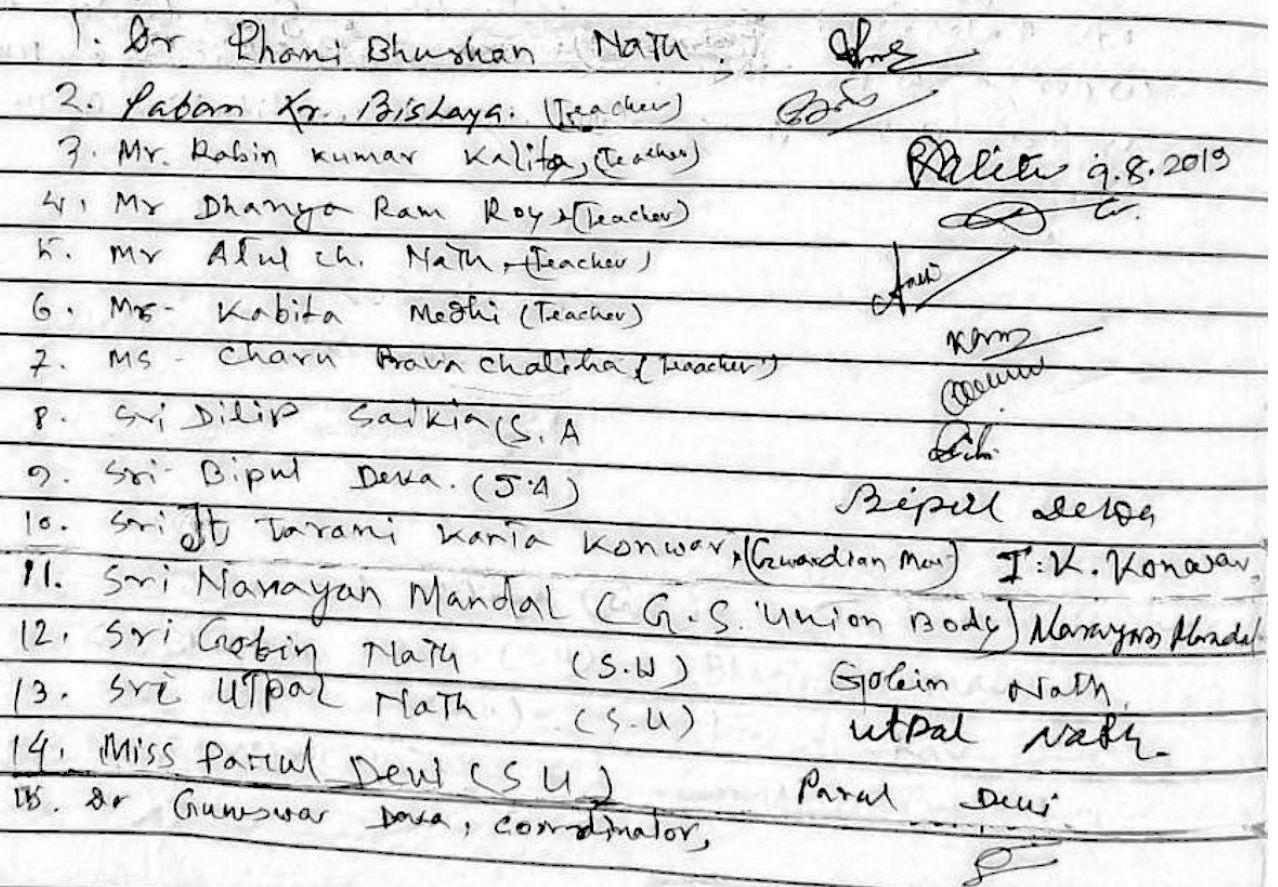 1. Dr Phani Bhushan Nath.
2. Paban Kr. Bishaya. (Teacher)
3. Mr. Rabin Kumar Kalita, (Teacher) RKalita 9.8.2019
4. Mr Dhanya Ram Roy, (Teacher)
5. Mr Atul ch. Nath, (Teacher)
6. Mrs- Kabita Medhi (Teacher)
7. Ms - Charu Prava Chaliha (Teacher)
8. Sri Dilip Saikia (S.A
9. Sri- Bipul Deka. (J.A) Bipul Deka
10. Sri Tarani Kanta Konwar, (Guardian Mem) T.K. Konwar.
11. Sri Narayan Mandal (G.S. Union Body) Narayan Mandal
12. Sri Gobin Nath (S.U) Gobin Nath.
13. Sri Utpal Nath (S.U) Utpal Nath.
14. Miss Parul Devi (S U) Parul Devi
15. Dr Guneswar Deka, coordinator,